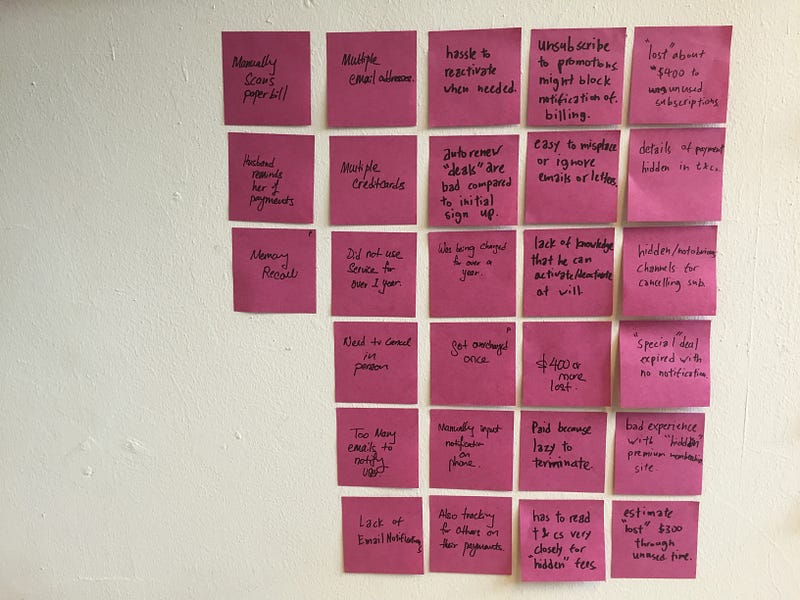 Manually
Scans
paper bill
Multiple
email addresses.
hassle to
reactivate
when needed.
unsubscribe
to promotions
might block
notification of
billing.
"lost" about
$400 to
unused
subscriptions
Husband
reminds
her of
payments
Multiple
creditcards
autorenew
"deals" are
bad compared
to initial
sign up.
easy to misplace
or ignore
emails or letters.
details of payment
hidden in t&cs.
P
Memory
Recall
Did not use
Service for
over 1 year.
Was being charged
for over a
year.
lack of knowledge
that he can
activate/deactivate
at will.
hidden/
channels for
cancelling sub.
Need to cancel
in
person
P
Got overcharged
once
$400 or
more
lost.
"special" deal
expired with
no notification.
Too Many
emails to
notify
Manually input
notification
on
phone.
Paid because
lazy to
terminate.
bad experience
with "hidden"
premium
site.
Lack of
Email Notifications
Also tracking
for others on
their payments.
has to read
t & cs very
closely for
"hidden" fees
estimate
"lost" $300
through
unused time.